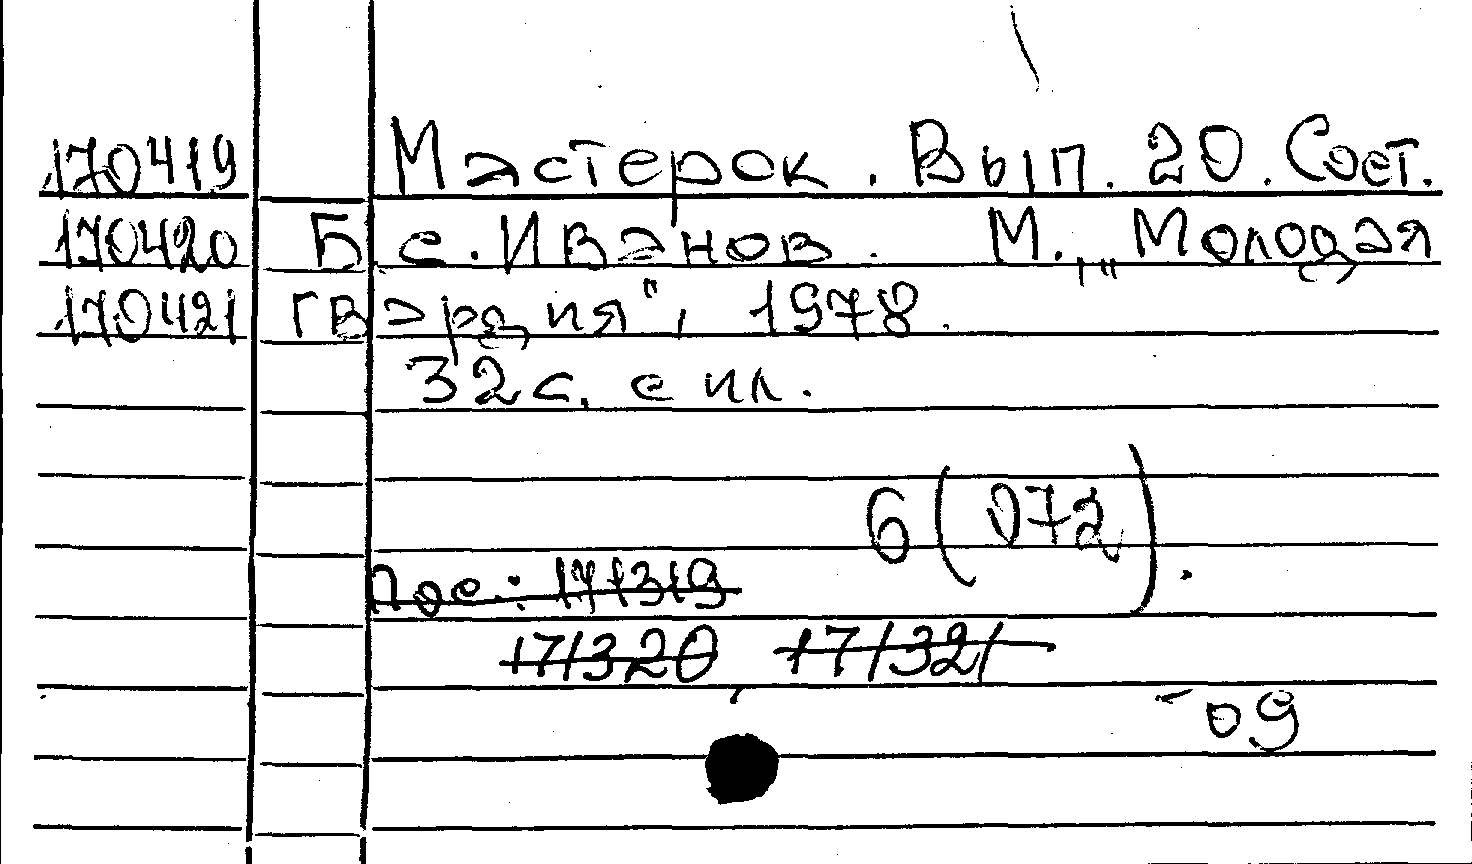 170419 Мастерок. Вып. 20. Сост.
170420 Б.С. Иванов. М., „Молодая
170421 гвардия", 1978.
32 с. с ил.
6(072).
Пос.: 171319
171320, 171321
-09